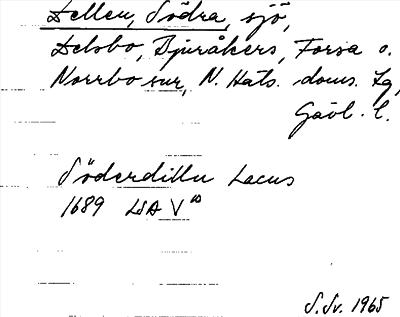 Dellen, Södra, sjö,
Delsbo, Bjuråkers, Forsa o.
Norrbo snr, N. Häls. doms. Lg,
Gävl. l.
Söderdillu Lacus
1689 LSA V
S.Sv. 1965